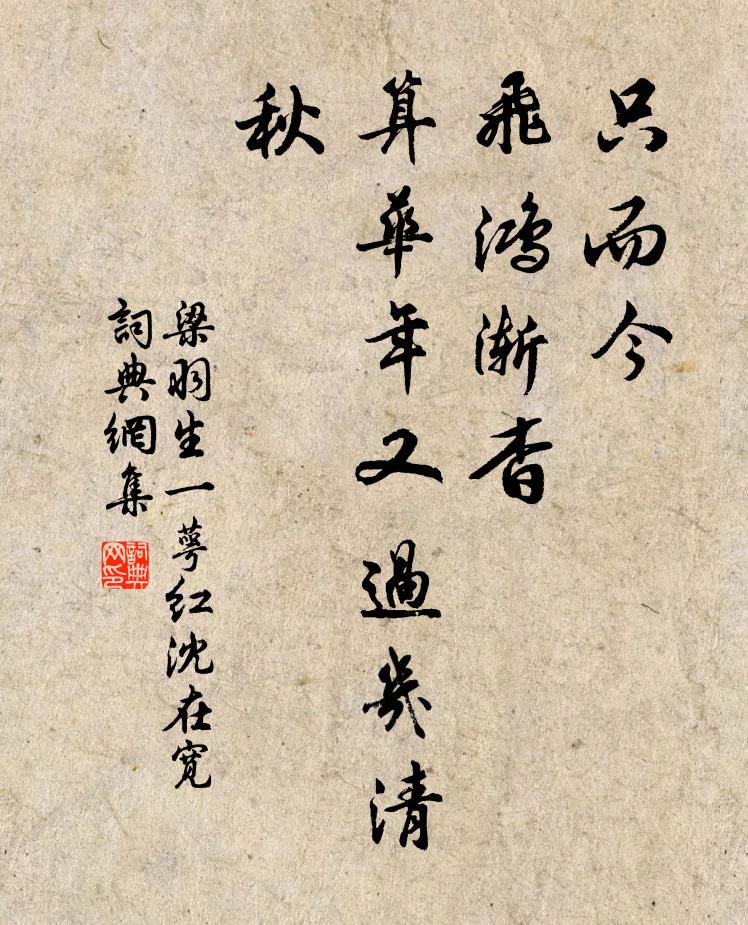 只而今
飛鴻渐杳
算華年又過幾清
秋
梁羽生一萼红沈在寛
詞典網集
詞典
网印